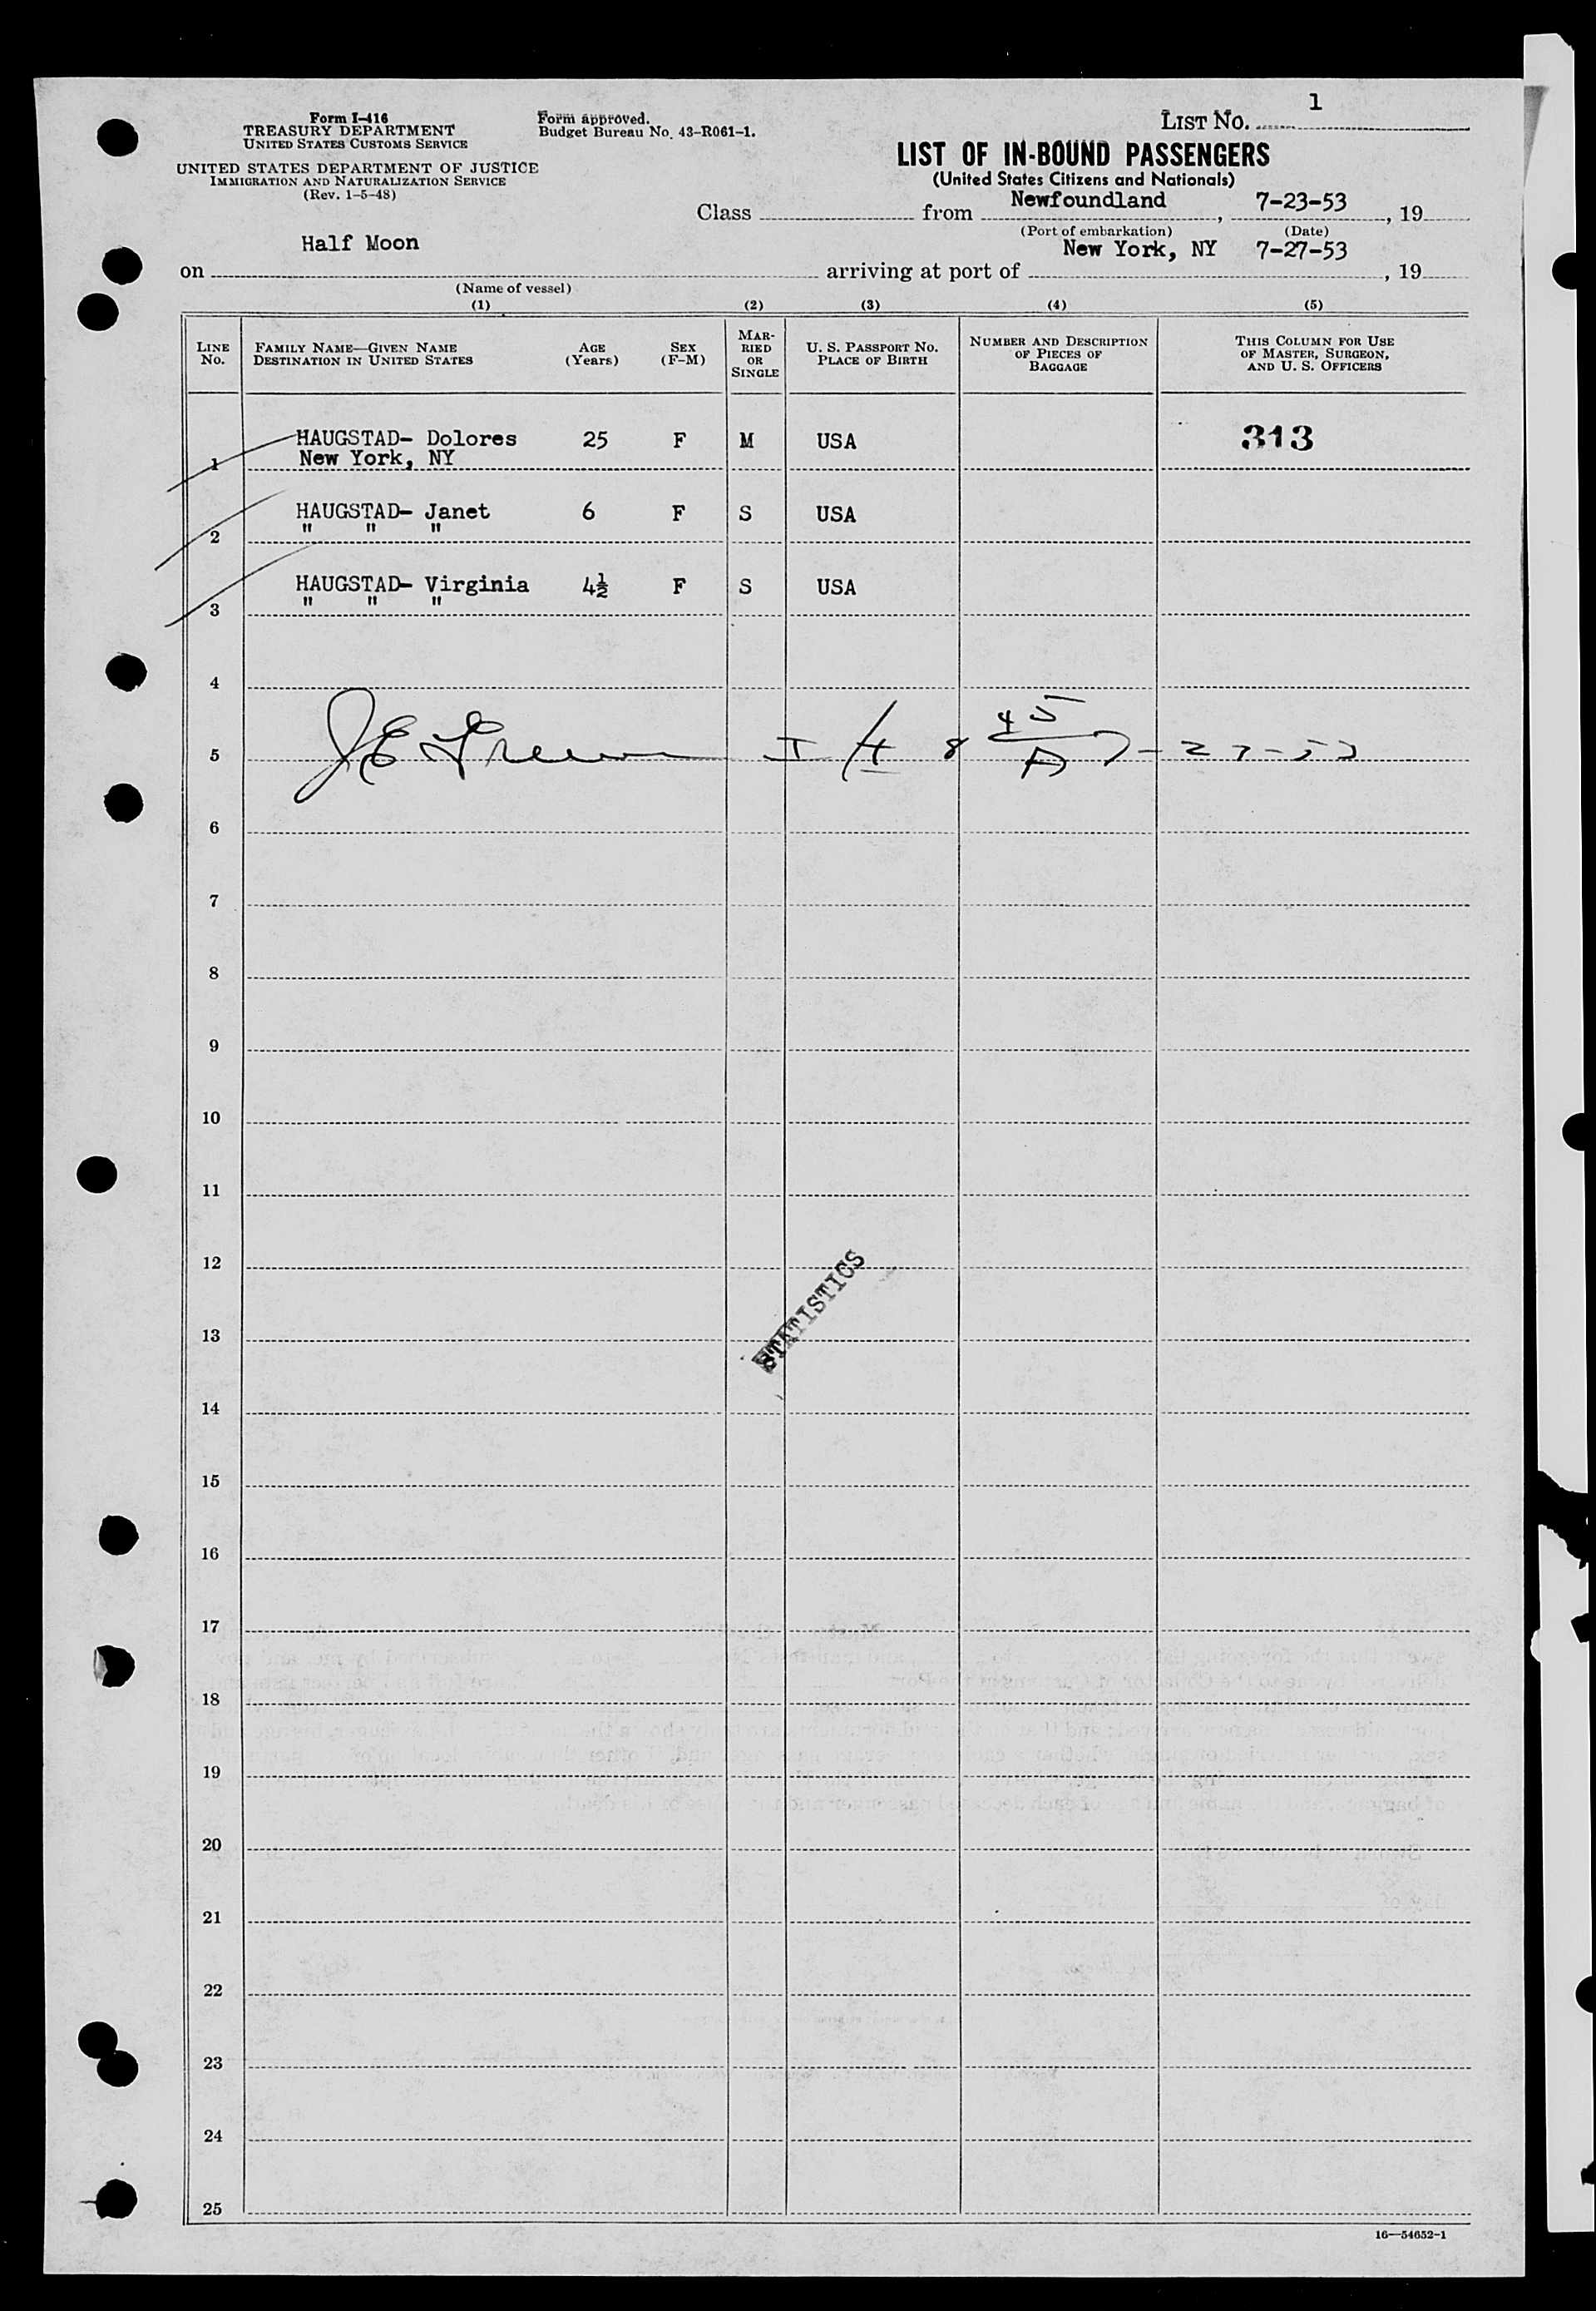 Form I-416
TREASURY DEPARTMENT
UNITED STATES CUSTOMS SERVICE
UNITED STATES DEPARTMENT OF JUSTICE
IMMIGRATION AND NATURALIZATION SERVICE
(Rev. 1-5-48)
Form approved.
Budget Bureau No. 43-R061-1.
LIST No. 1
LIST OF IN-BOUND PASSENGERS
(United States Citizens and Nationals)
Class from Newfoundland, 7-23-53, 19
(Port of embarkation) (Date)
on Half Moon arriving at port of New York, NY 7-27-53, 19
(Name of vessel)
(1) (2) (3) (4) (5)
LINE No.
FAMILY NAME—GIVEN NAME
DESTINATION IN UNITED STATES
AGE (Years)
SEX (F-M)
MARRIED OR SINGLE
U. S. PASSPORT NO.
PLACE OF BIRTH
NUMBER AND DESCRIPTION OF PIECES OF BAGGAGE
THIS COLUMN FOR USE OF MASTER, SURGEON, AND U. S. OFFICERS
1 HAUGSTAD- Dolores 25 F M USA 313
New York, NY
2 HAUGSTAD- Janet 6 F S USA
" " "
3 HAUGSTAD- Virginia 4½ F S USA
" " "
4
5 7-27-53
6
7
8
9
10
11
12
STATISTICS
13
14
15
16
17
18
19
20
21
22
23
24
25
16—54652-1